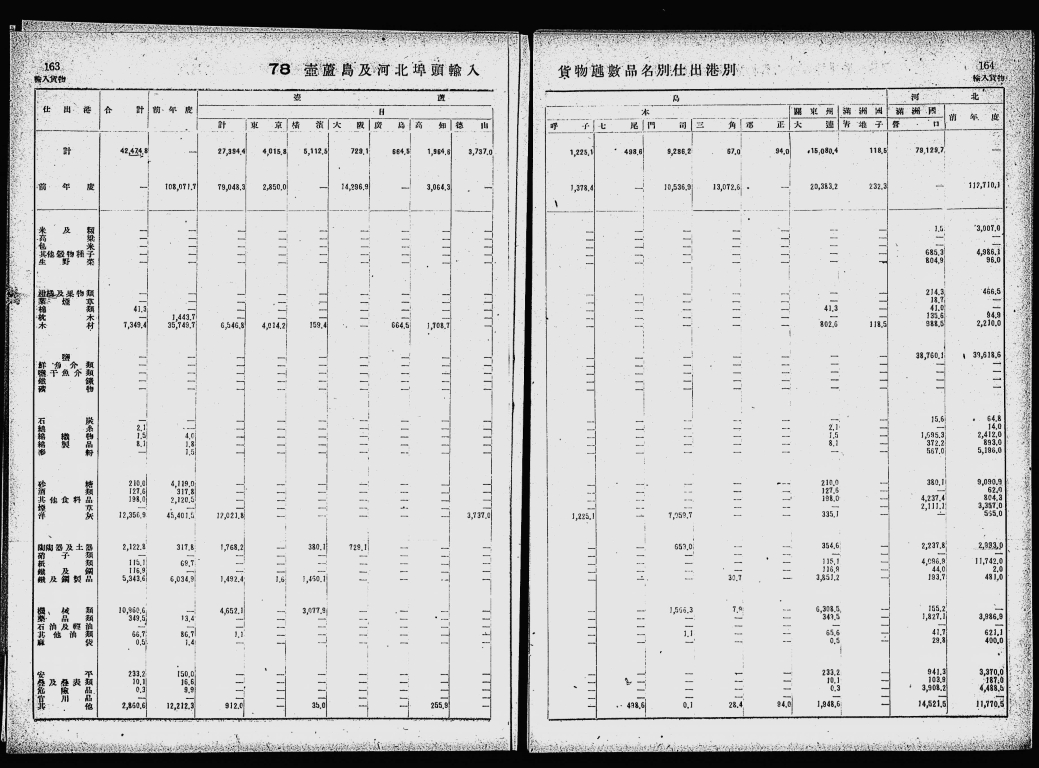 163
輸入貨物
78 壺蘆島及河北埠頭輸入
仕出港 合計 前年度 壺蘆
日
計 東京 横濱 大阪 廣島 高知 德山
計 42,474.8 — 27,394.4 4,015.8 5,112.5 729.1 664.5 1,964.6 3,737.0
前年度 — 108,071.7 79,048.3 2,850.0 — 14,296.9 — 3,064.3 —
米及類 — — — — — — — — —
高粱 — — — — — — — — —
包米 — — — — — — — — —
其他穀物種子 — — — — — — — — —
生野菜 — — — — — — — — —
柑橘及菓物類 — — — — — — — — —
葉煙草 — — — — — — — — —
類 41.3 — — — — — — — —
枕木 — 1,443.7 — — — — — — —
木材 7,349.4 35,749.7 6,546.8 4,014.2 159.4 — 664.5 1,708.7 —
鹽 — — — — — — — — —
鮮魚介類 — — — — — — — — —
鹽干魚介類 — — — — — — — — —
— — — — — — — — —
礦物 — — — — — — — — —
石炭 — — — — — — — — —
綿糸 2.1 — — — — — — — —
綿織物 1.5 4.0 — — — — — — —
綿製品 8.1 1.8 — — — — — — —
麥粉 — 1.5 — — — — — — —
砂糖 210.0 4,119.0 — — — — — — —
酒類 127.6 317.8 — — — — — — —
其他食料品 198.0 2,120.5 — — — — — — —
煙草 — — — — — — — — —
洋灰 12,356.9 45,401.5 12,021.8 — — — — — 3,737.0
陶陶器及土器 2,122.8 317.8 1,768.2 — 380.1 729.1 — — —
硝子類 — — — — — — — — —
紙類 115.1 69.7 — — — — — — —
鐵及鋼 116.9 — — — — — — — —
鐵及鋼製品 5,343.6 6,034.9 1,492.4 1.6 1,460.1 — — — —
機械類 10,960.6 — 4,652.1 — 3,077.9 — — — —
藥品類 349.5 13.4 — — — — — — —
石油及輕油 — — — — — — — — —
其他油類 66.7 86.7 1.1 — — — — — —
麻袋 0.5 1.4 — — — — — — —
安平 233.2 150.0 — — — — — — —
疊及疊表類 10.1 16.6 — — — — — — —
危險品 0.3 9.9 — — — — — — —
官用品 — — — — — — — — —
其他 2,860.6 12,212.3 912.0 — 35.0 — — 255.9 —
164
輸入貨物
貨物噸數品名別仕出港別
島 河北
本 關東州 滿洲國 滿洲國 前年度
呼子 七尾 門司 三角 大連 營口
1,225.1 498.6 9,286.2 67.0 94.0 15,080.4 118.5 79,129.7 —
1,378.4 — 10,536.9 13,072.6 — 20,383.2 232.3 — 117,710.1
— — — — — — — 1.5 3,007.0
— — — — — — — — —
— — — — — — — — —
— — — — — — — 685.3 4,986.1
— — — — — — — 804.9 96.0
— — — — — — — 214.3 466.5
— — — — — — — 18.7 —
— — — — — 41.3 — 41.0 —
— — — — — — — 135.6 94.9
— — — — — 802.6 118.5 988.5 2,210.0
— — — — — — — 38,760.1 39,618.6
— — — — — — — — —
— — — — — — — — —
— — — — — — — — —
— — — — — — — — —
— — — — — — — 15.6 64.8
— — — — — 2.1 — — 14.0
— — — — — 1.5 — 1,595.3 2,412.0
— — — — — 8.1 — 372.2 893.0
— — — — — — — 567.0 5,196.0
— — — — — 210.0 — 380.1 9,090.9
— — — — — 127.6 — — 62.0
— — — — — 198.0 — 4,237.4 804.3
— — — — — — — 2,111.1 3,357.0
1,225.1 — 7,059.7 — — 335.1 — — 555.0
— — 659.0 — — 354.6 — 2,237.8 2,993.0
— — — — — — — — —
— — — — — 115.1 — 4,096.9 11,742.0
— — — — — 116.9 — 44.0 2.0
— — — 30.7 — 3,851.2 — 193.7 481.0
— — 1,566.3 7.9 — 6,308.5 — 155.2 —
— — — — — 349.5 — 1,827.1 3,986.9
— — — — — — — — —
— — 1.1 — — 65.6 — 41.7 621.1
— — — — — 0.5 — 29.8 400.0
— — — — — 233.2 — 941.3 3,370.0
— — — — — 10.1 — 103.9 187.0
— — — — — 0.3 — 3,908.2 4,488.5
— — — — — — — — —
— 498.6 0.1 28.4 94.0 1,948.6 — 14,521.5 11,770.5